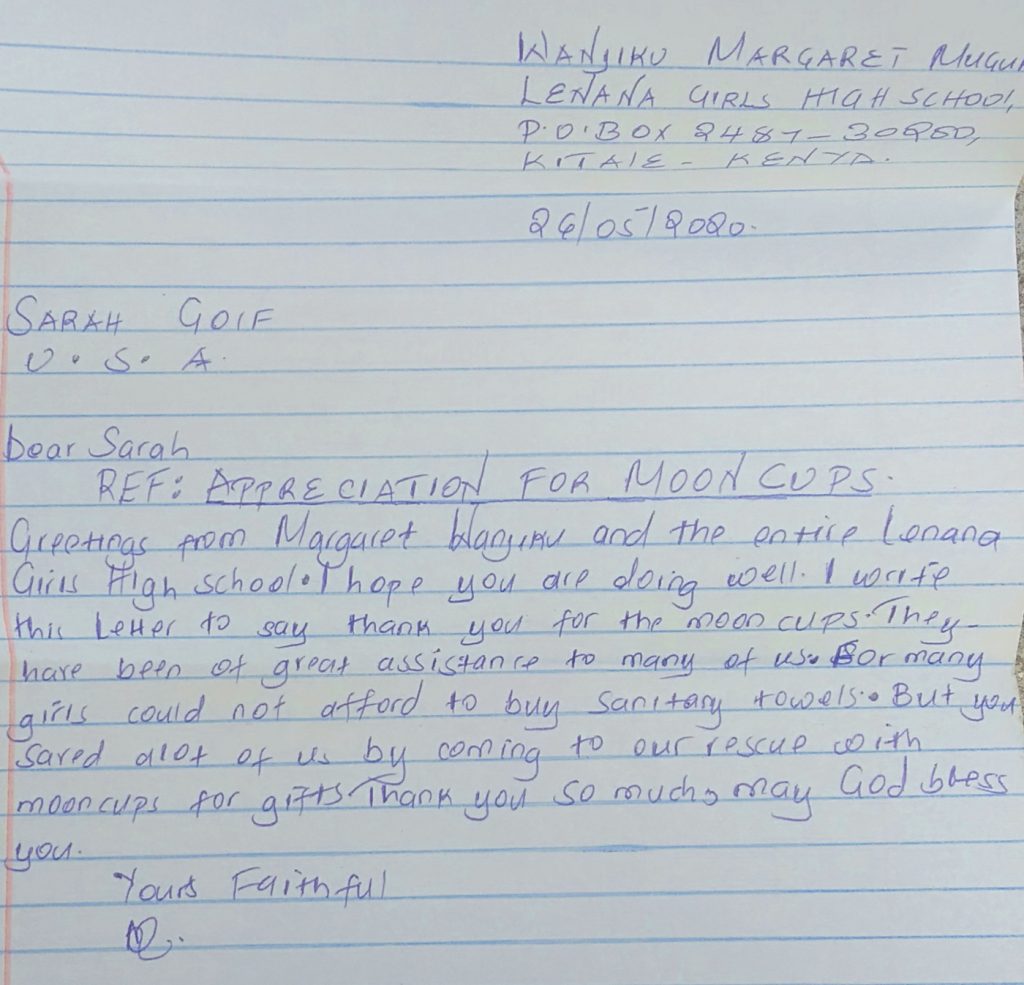 WANJIKU MARGARET MUGU
LENANA GIRLS HIGH SCHOOL,
P.O.BOX 2487-30200,
KITALE - KENYA.
26/05/2020.
SARAH GOLF
U.S.A.
Dear Sarah
REF: APPRECIATION FOR MOON CUPS.
Greetings from Margaret Wanjiku and the entire Lenana
Girls High school. I hope you are doing well. I write
this Letter to say thank you for the moon cups. They
have been of great assistance to many of us. For many
girls could not afford to buy sanitary towels. But you
saved alot of us by coming to our rescue with
mooncups for gifts Thank you so much, may God bless
you.
Yours Faithful